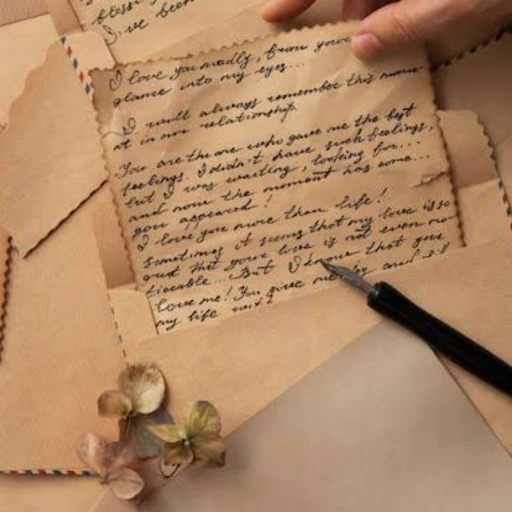 bless
I've been
I love you madly, from your
glance into my eyes...
I will always remember this mom
at in our relationship.
You are the one who gave me the best
feelings. I didn't have such feelings,
but I was waiting, looking for...
and now the moment has come...
you appeared!
I love you more than life!
sometimes it seems that my love is so
great that your love is not even no
ticeable... But I know that you
love me! You give me and
my life